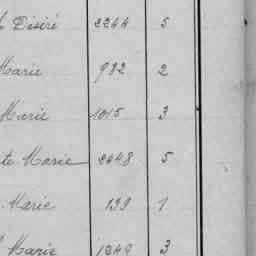 Désiré 2244 5
Marie 982 2
Marie 1015 3
te Marie 2448 5
Marie 199 1
Marie 1249 3